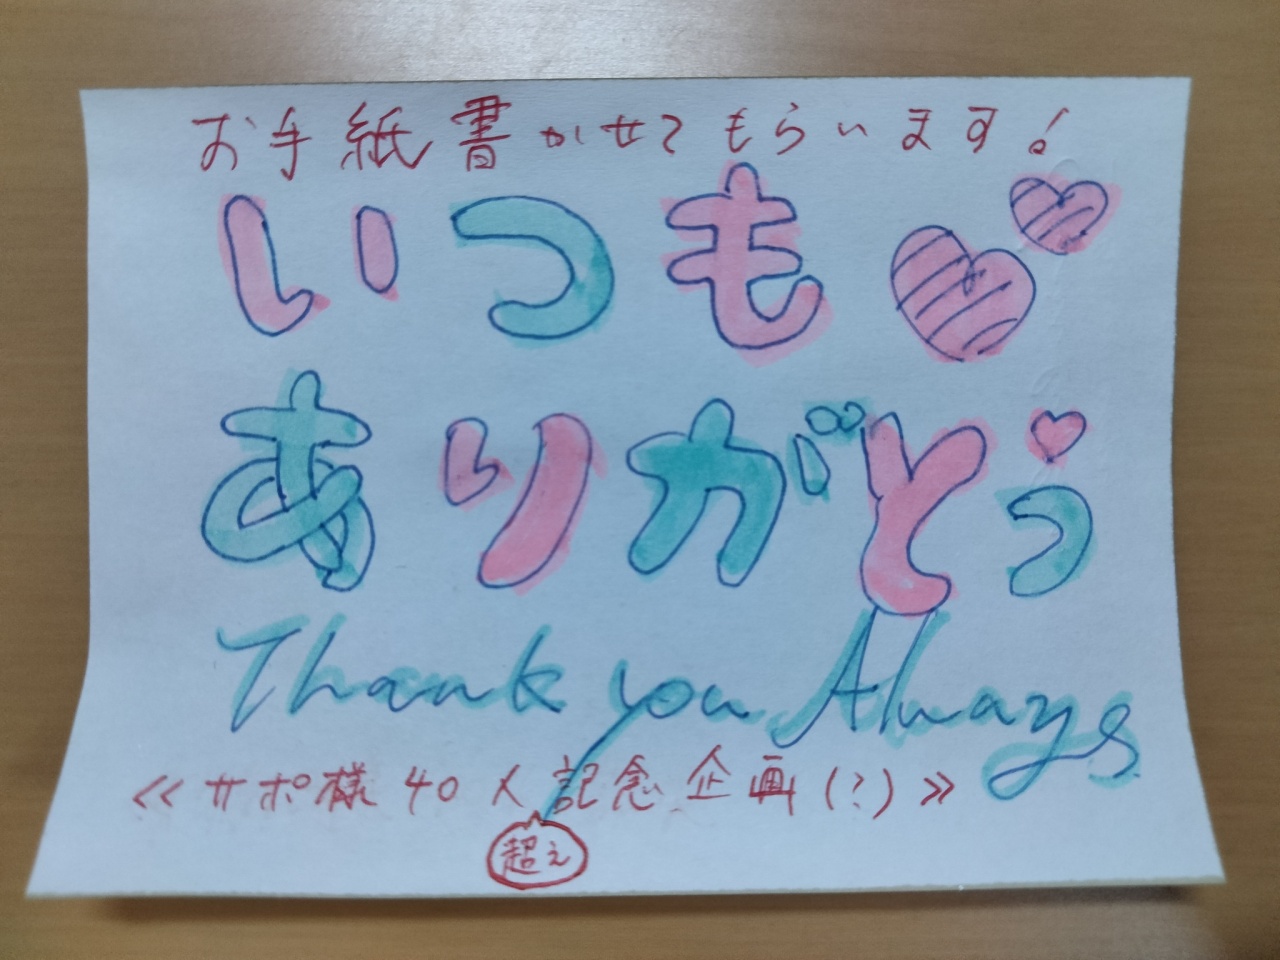 お手紙書かせてもらいます!
いつも
ありがとう
Thank you Always
《サポ様40人記念企画(?)》
超え